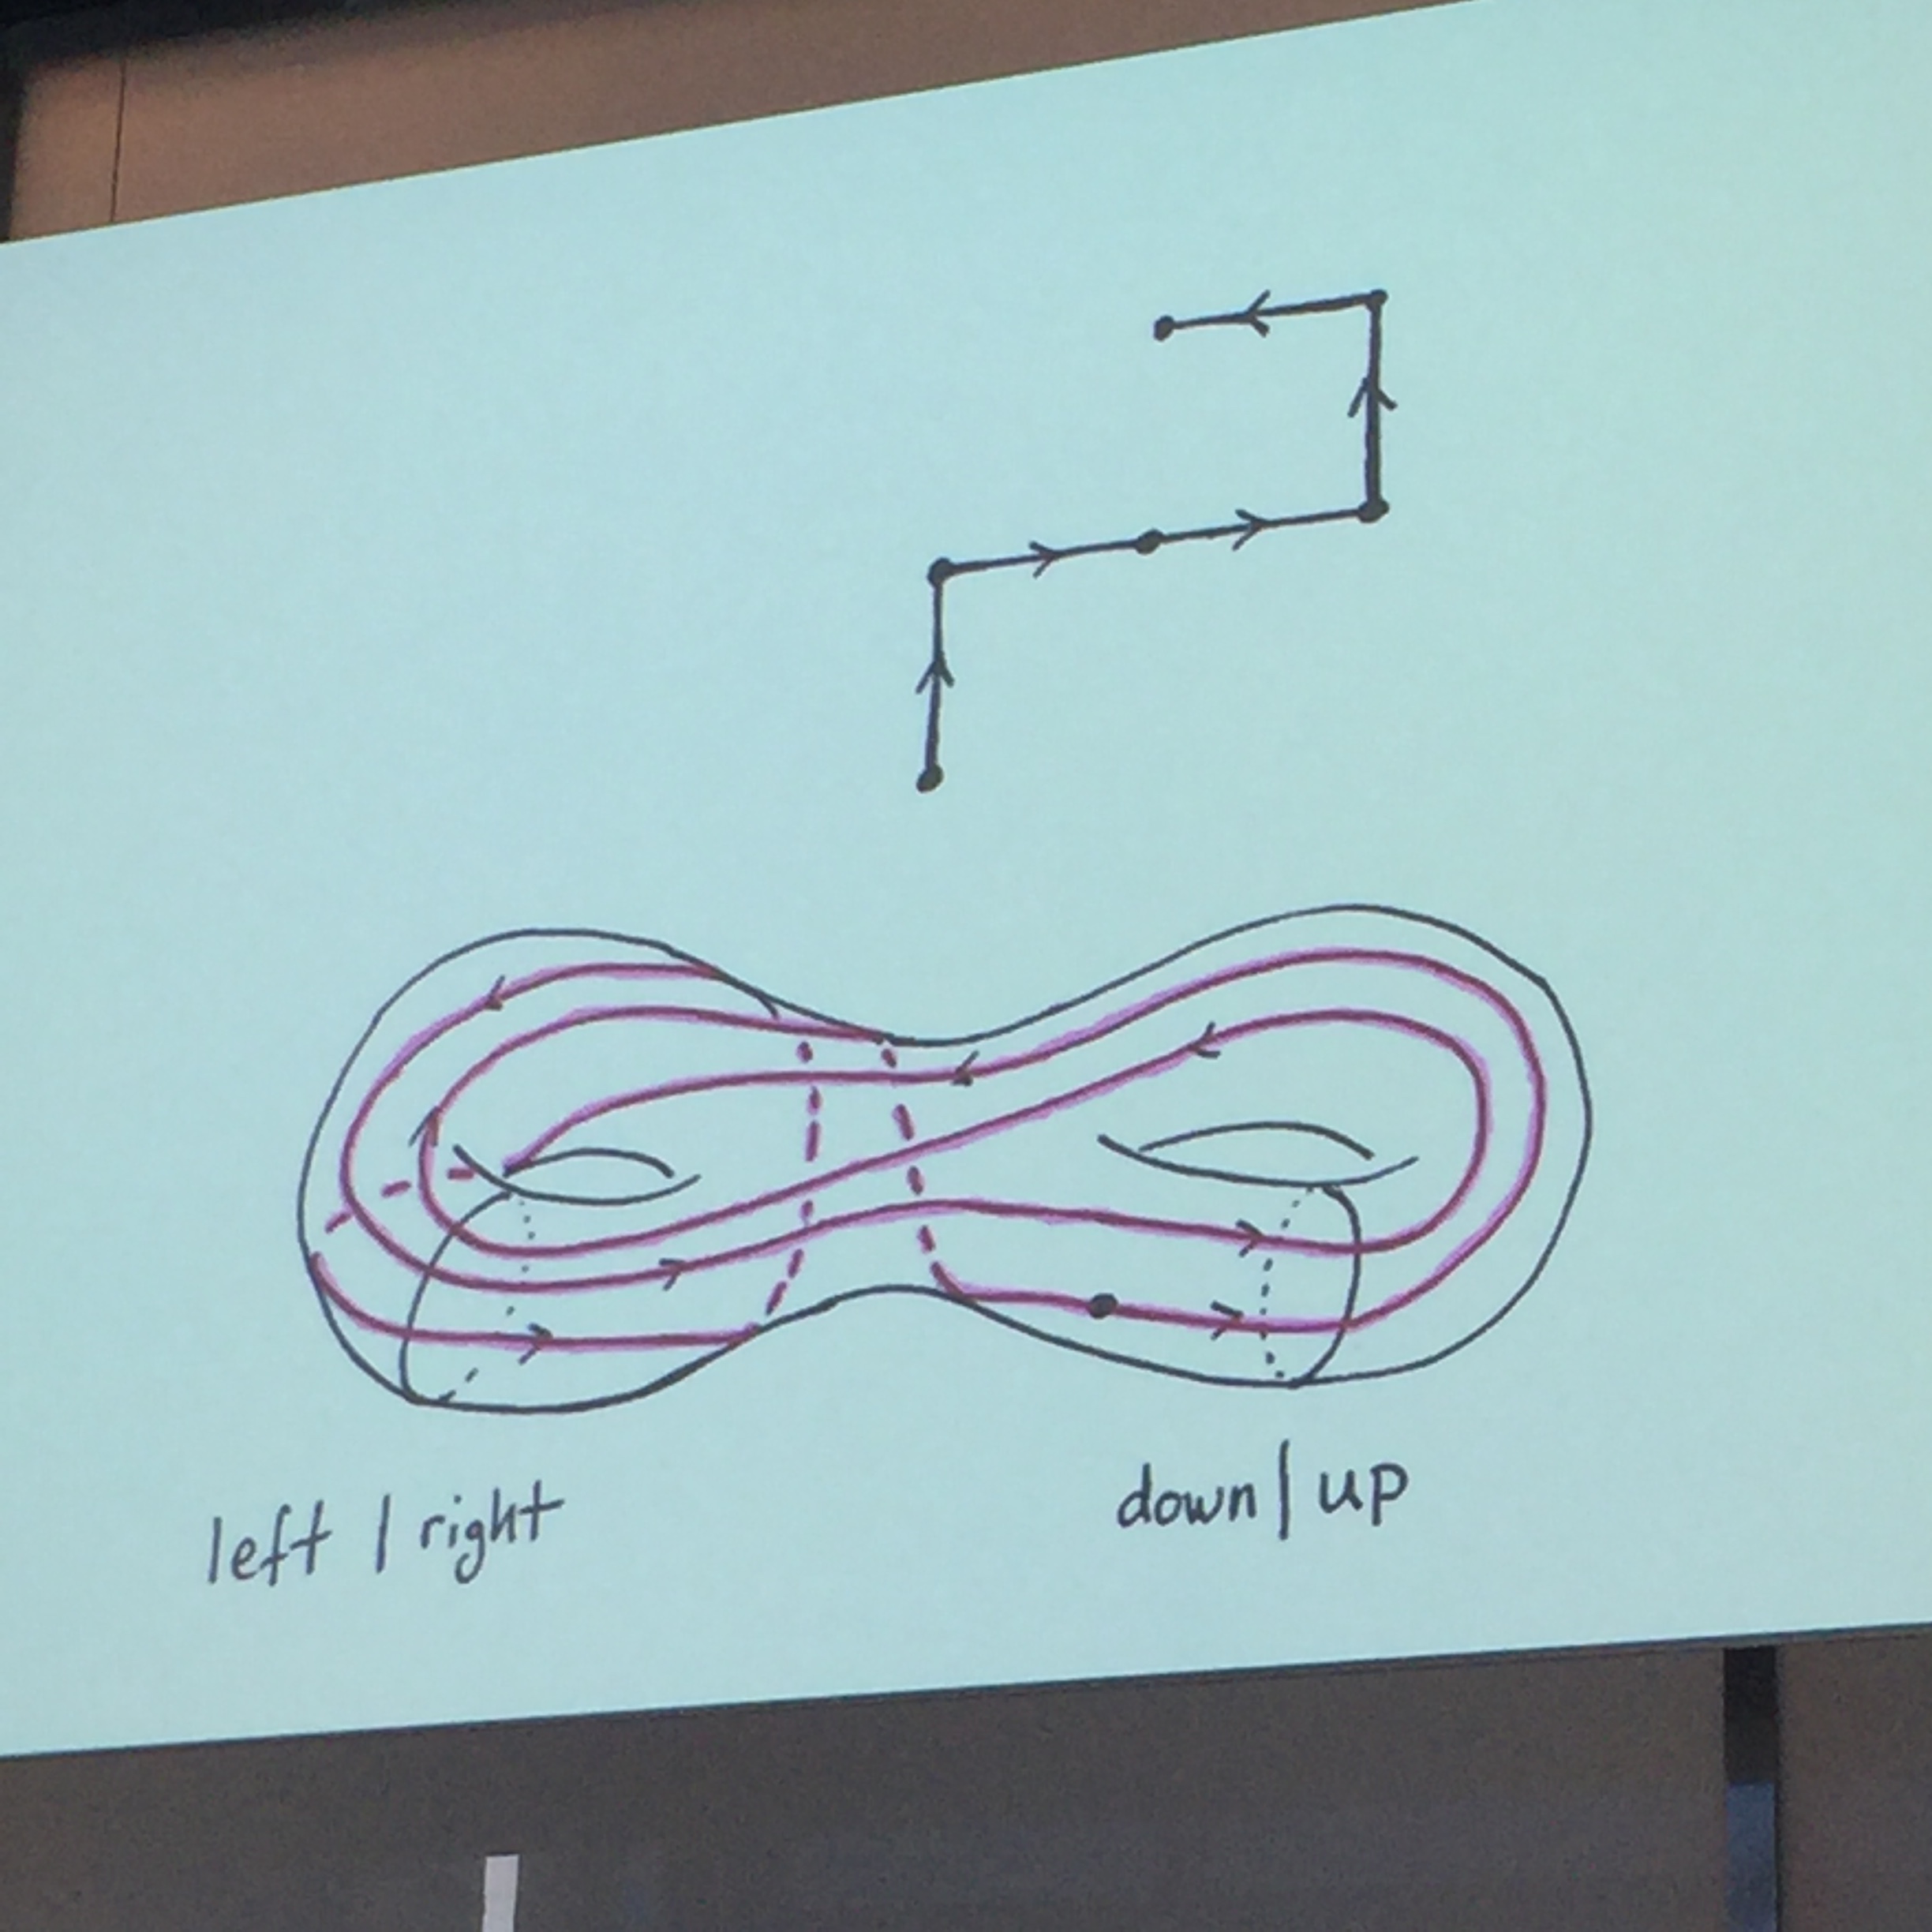 left | right
down | up